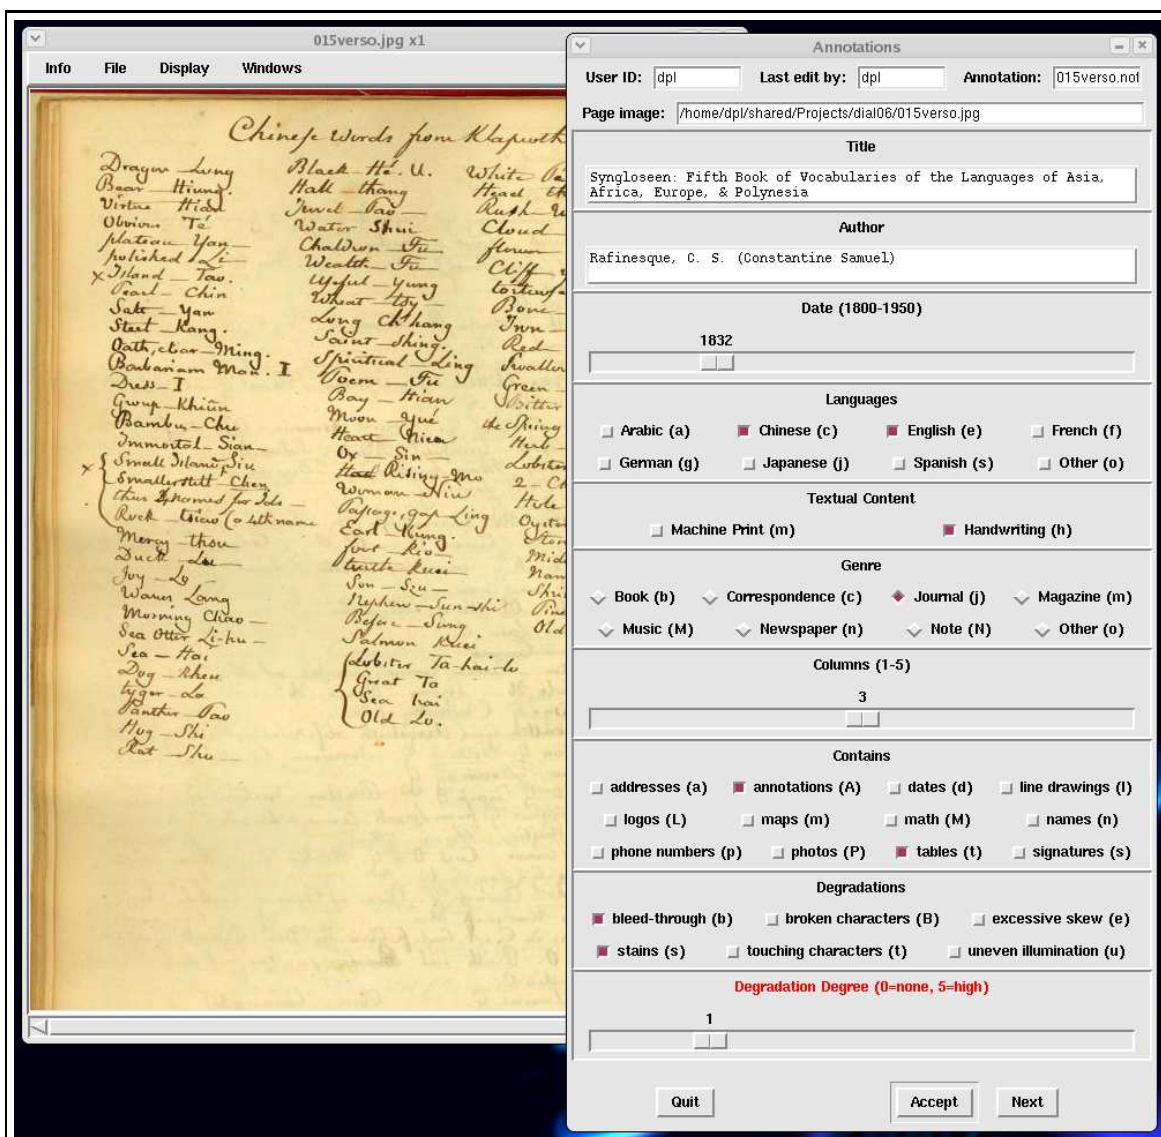 015verso.jpg x1
Info File Display Windows
Chinese Words from Klaproth
Dragon Lung
Bear Hiung.
Virtue Hian
Obvious Té
plateau Yan
polished Li
x Island Tao.
Pearl Chin
Salt Yan
Steel Kang.
Oath, clear Ming.
Barbarian Man. I
Dress I
Group Khiün
Bambu Chu
Immortal Sian
x Small Island, Siu
Smaller still Chen
thus 4 named for Isls
Rock tsiao (a 4th name
Mercy thou
Duck
Joy Lo
Waves Lang
Morning Chao
Sea Otter Li-hu
Sea Hai
Dog Kheu
tyger La
Panther Pao
Hog Shi
Rat Shu
Black Hé. U.
Hall thang
Jewel Pao
Water Shui
Chaldron Fu
Wealth Fu
Useful yung
Wheat tsy
Long Ch'hang
Saint Shing.
Spiritual Ling
Poem Fu
Bay Hian
Moon Yué
Heart
Ox Sin
Had Rising Mo
Woman Niu
Passage, gap Ling
Earl Kung.
foot Kio
turtle Kuei
Son Szu
Nephew Sun-shi
Before Sung
Salmon Kuei
Lobster Ta-hai-lo
Great Ta
Sea hai
Old Lo.
White
Head
Rush
Cloud
flower
Cliff
tortuous
Bone
Iron
Red
Swallow
Green
Bitter
the Spring
Herb
Lobster
2
Hole
Oyster
Old
Annotations
User ID: dpl Last edit by: dpl Annotation: 015verso.not
Page image: /home/dpl/shared/Projects/dial06/015verso.jpg
Title
Syngloseen: Fifth Book of Vocabularies of the Languages of Asia,
Africa, Europe, & Polynesia
Author
Rafinesque, C. S. (Constantine Samuel)
Date (1800-1950)
1832
Languages
Arabic (a) Chinese (c) English (e) French (f)
German (g) Japanese (j) Spanish (s) Other (o)
Textual Content
Machine Print (m) Handwriting (h)
Genre
Book (b) Correspondence (c) Journal (j) Magazine (m)
Music (M) Newspaper (n) Note (N) Other (o)
Columns (1-5)
3
Contains
addresses (a) annotations (A) dates (d) line drawings (l)
logos (L) maps (m) math (M) names (n)
phone numbers (p) photos (P) tables (t) signatures (s)
Degradations
bleed-through (b) broken characters (B) excessive skew (e)
stains (s) touching characters (t) uneven illumination (u)
Degradation Degree (0=none, 5=high)
1
Quit Accept Next